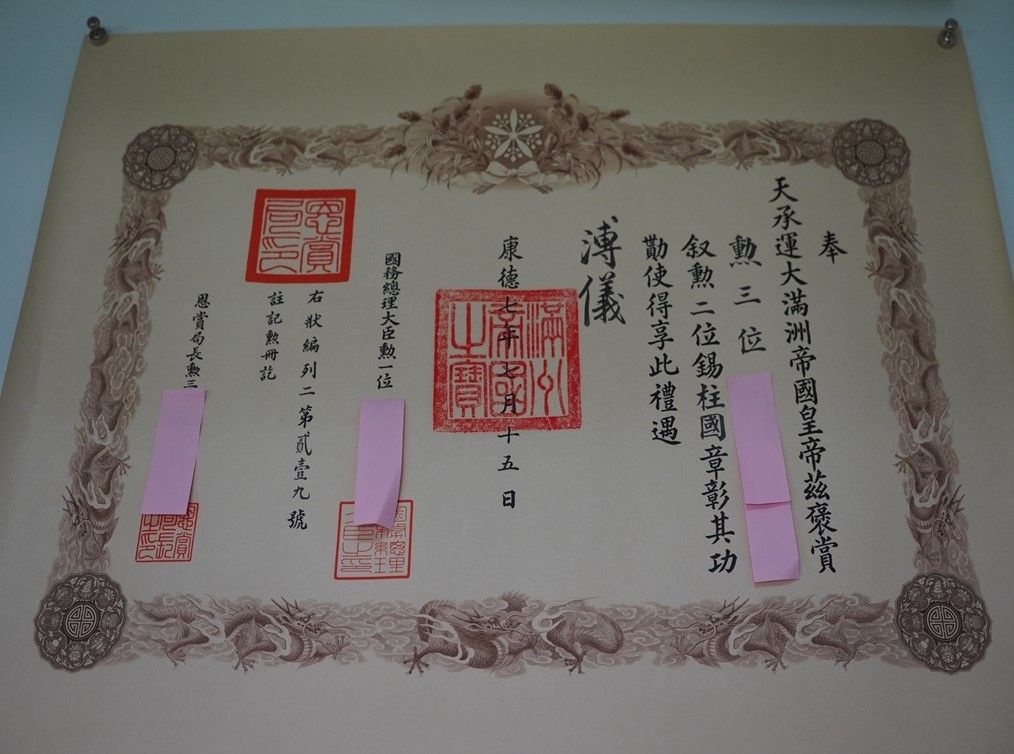 奉
天承運大滿洲帝國皇帝茲褒賞
勲三位
叙勲二位錫柱國章彰其功
勛使得享此禮遇
溥儀
康德七年七月十五日
滿洲帝國之寶
國務總理大臣勲一位
右狀編列二第貳壹九號
註記勲冊訖
恩賞局長勲三
恩賞局印